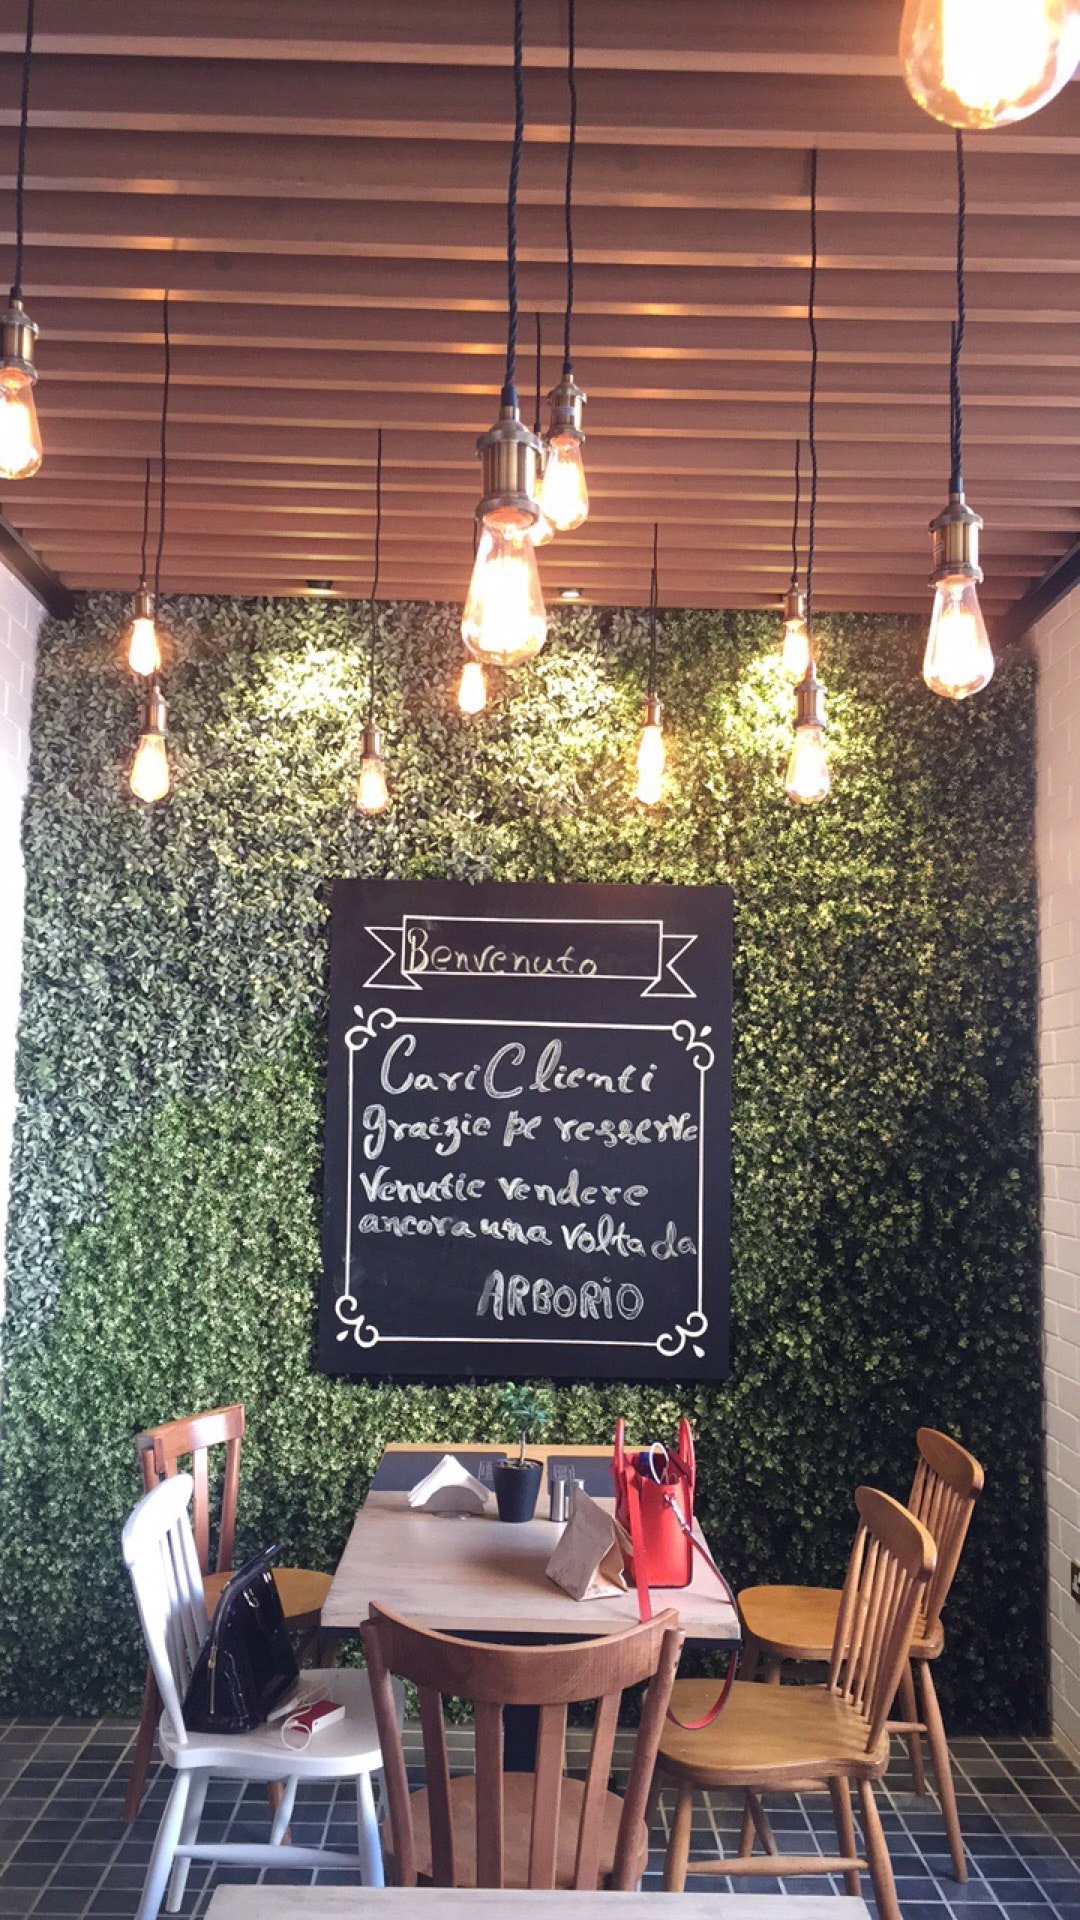 Benvenuto
Cari Clienti
graizie pe resserve
Venutie vendere
ancora una volta da
ARBORIO